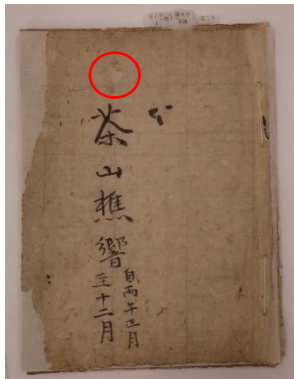 茶山樵響
自丙午正月
至十二月